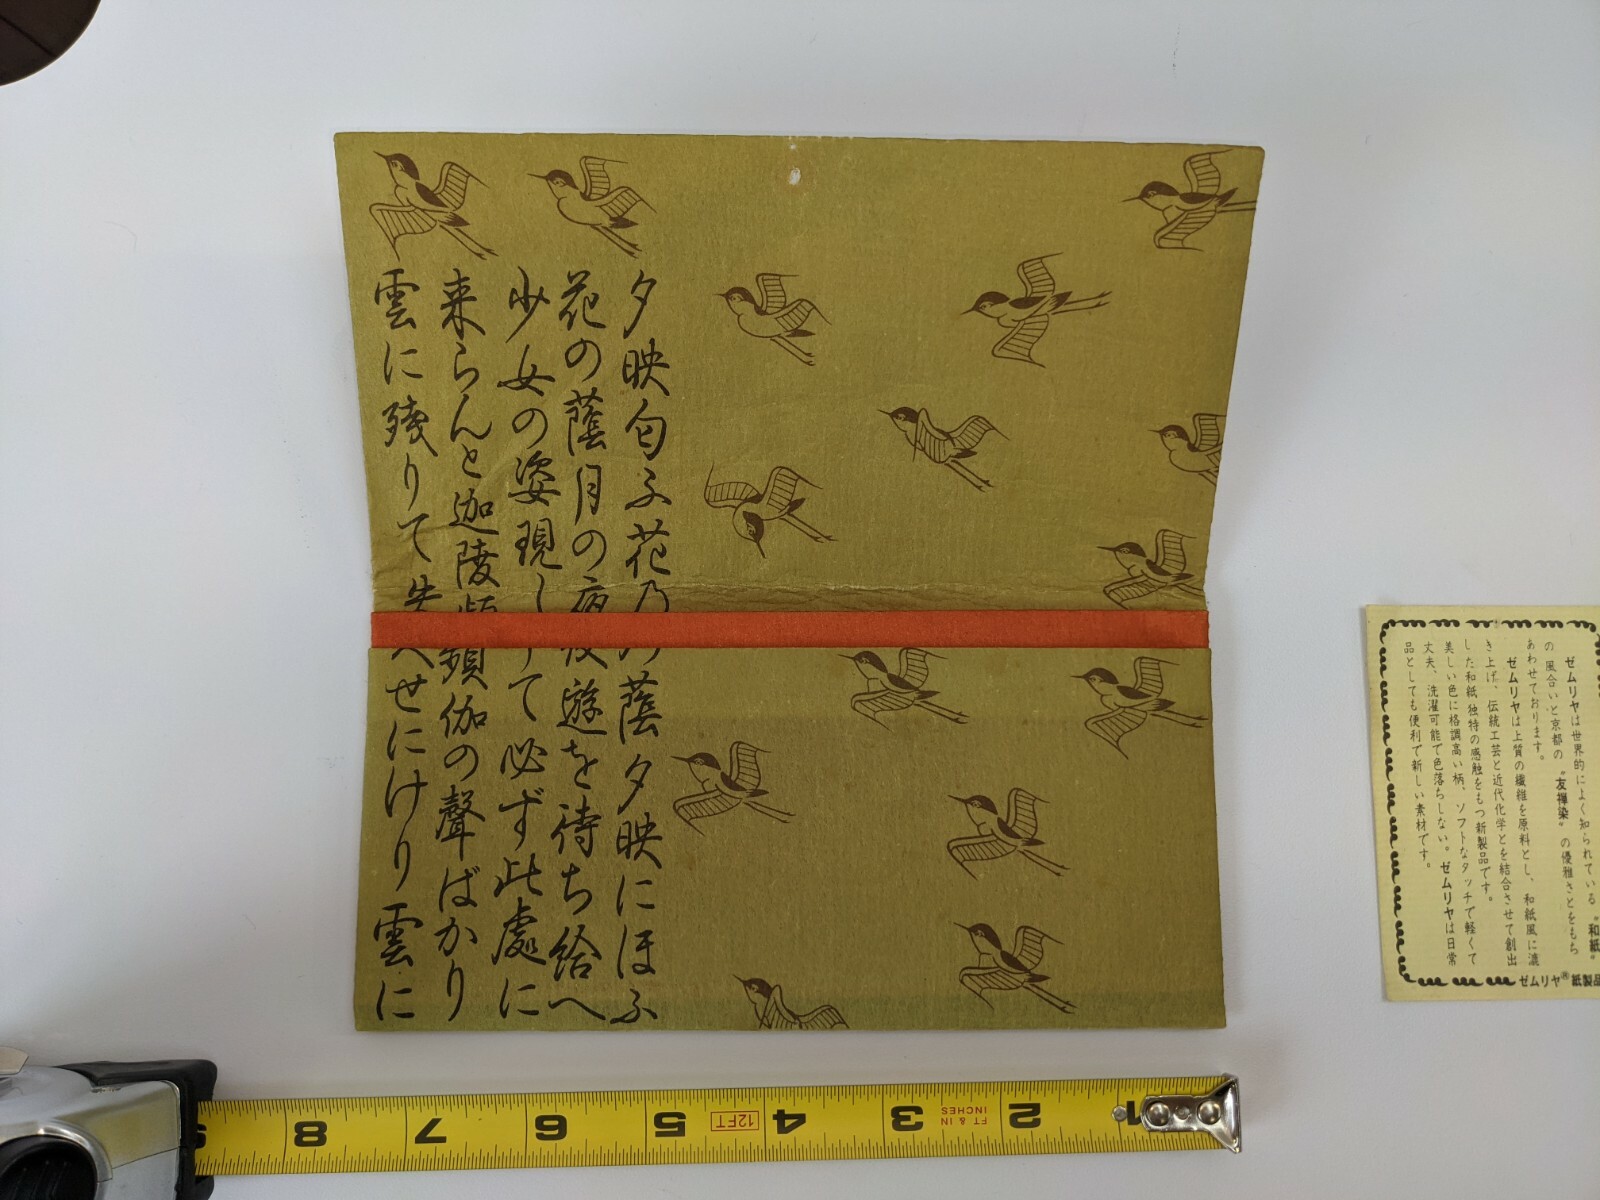 夕映匂ふ花乃蔭夕映にほふ
花の蔭月の夜遊を待ち給へ
少女の姿現して必ず此處に
来らんと迦陵頻伽の聲ばかり
雲に残りて失せにけり雲に
ゼムリヤは世界的によく知られている“和紙”
の風合いと京都の“友禅染”の優雅さとをもち
あわせております。
ゼムリヤは上質の繊維を原料とし、和紙風に漉
き上げ、伝統工芸と近代化学とを結合させて創出
した和紙独特の感触をもつ新製品です。
美しい色に格調高い柄、ソフトなタッチで軽くて
丈夫、洗濯可能で色落ちしない。ゼムリヤは日常
品としても便利で新しい素材です。
ゼムリヤ®紙製品
1 2 3 4 5 6 7 8
FT & IN
INCHES
12FT